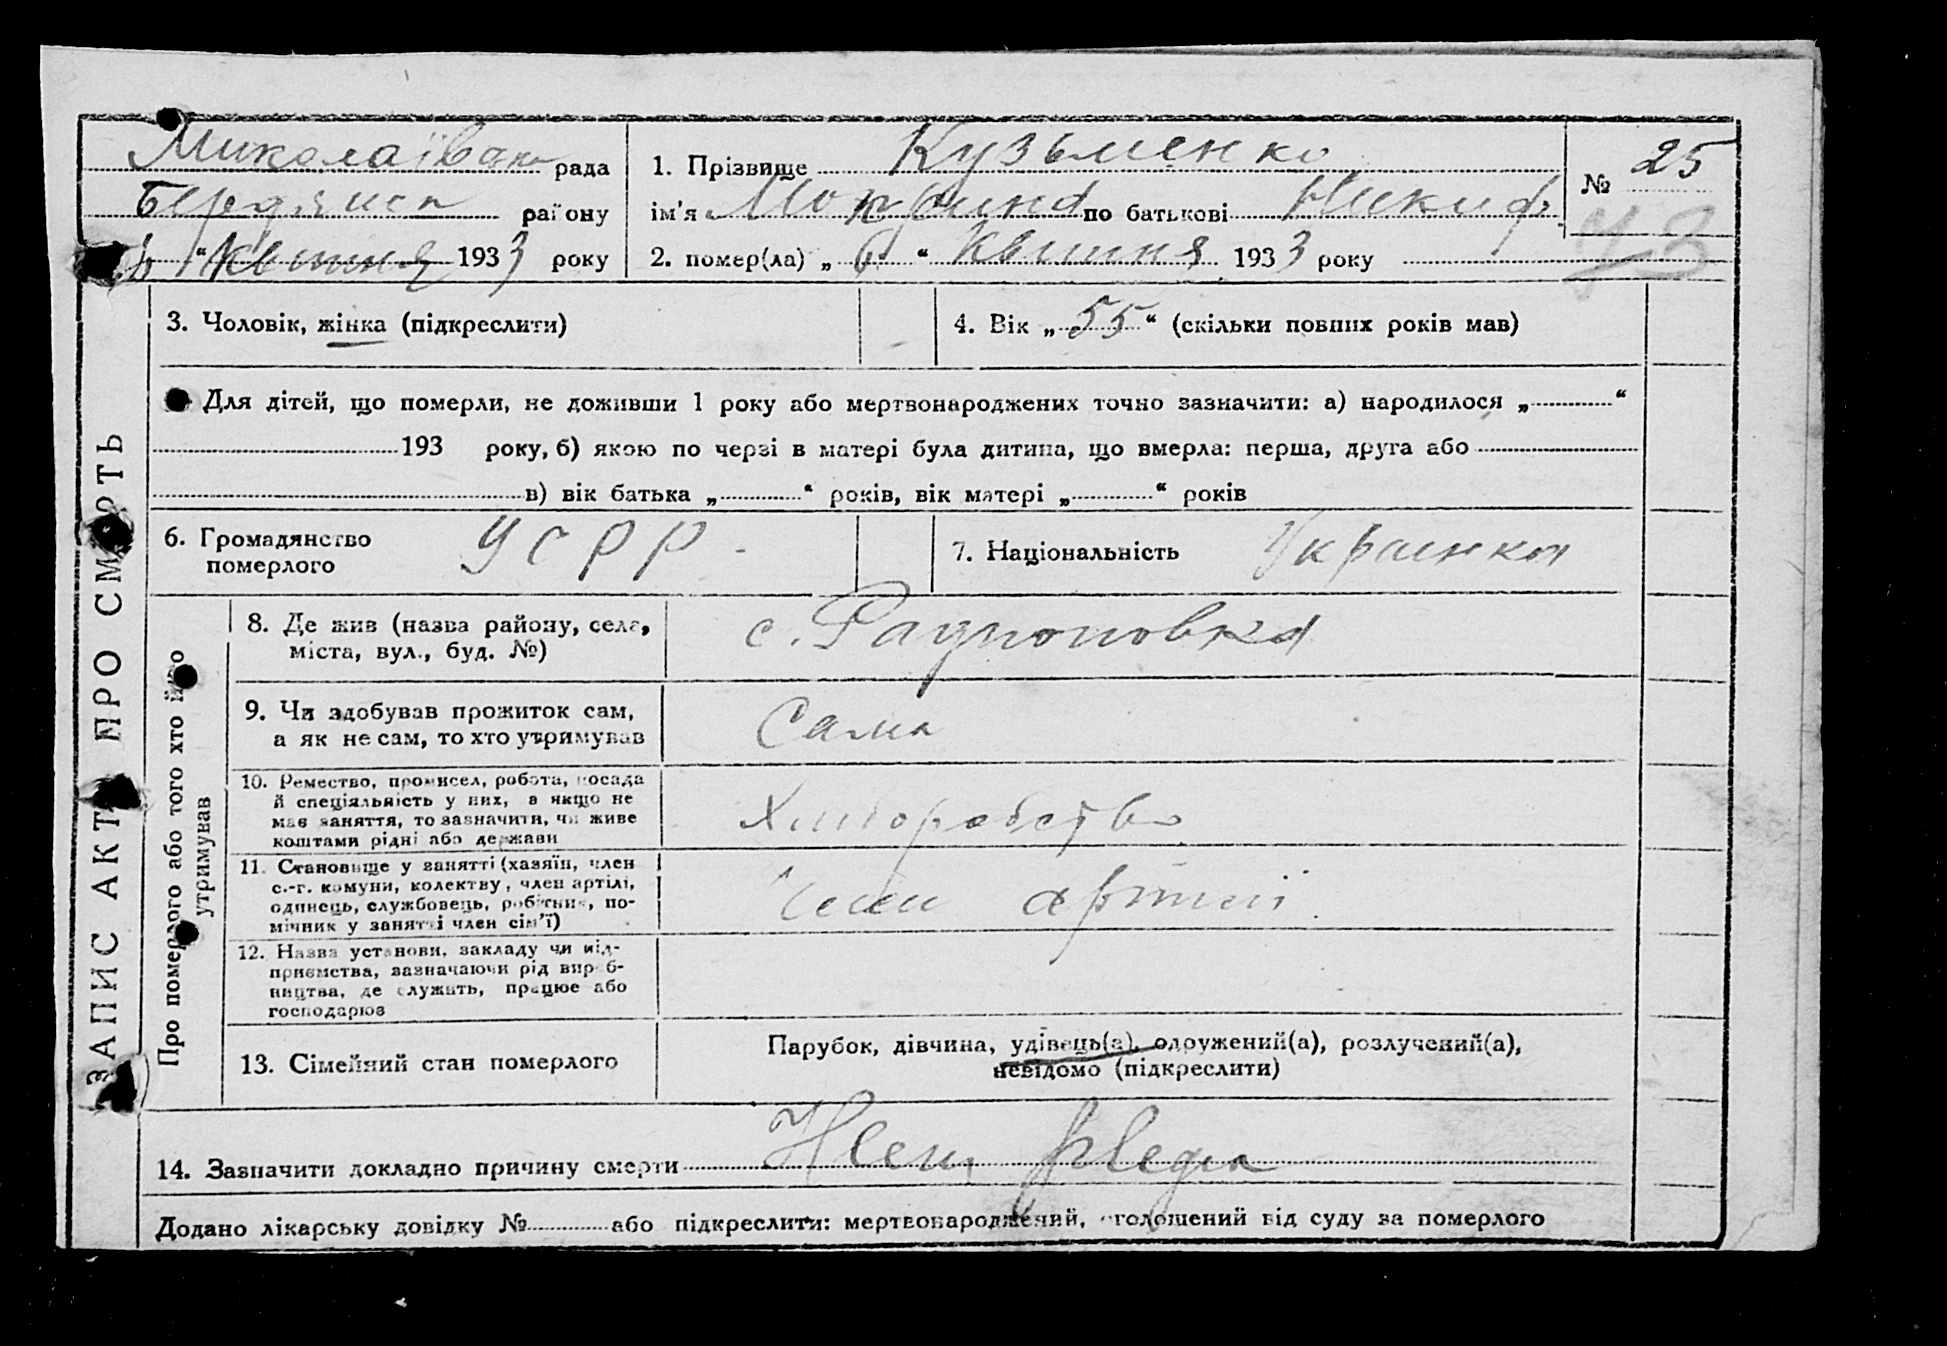 Миколаївськ рада
Бердянськ району
6 " квітня 1933 року
1. Прізвище Кузьменко
ім'я Мокрина по батькові Никиф.
2. помер(ла) „ 6 " квітня 1933 року
№ 25
43
ЗАПИС АКТУ ПРО СМЕРТЬ
3. Чоловік, жінка (підкреслити)
4. Вік „ 55 " (скільки повних років мав)
Для дітей, що померли, не доживши 1 року або мертвонароджених точно зазначити: а) народилося „ "
193 року, б) якою по черзі в матері була дитина, що вмерла: перша, друга або
в) вік батька „ " років, вік матері „ " років
6. Громадянство
померлого
УСРР -
7. Національність Украинка
Про померлого або того хто його
утримував
8. Де жив (назва району, села,
міста, вул., буд. №)
с.
9. Чи здобував прожиток сам,
а як не сам, то хто утримував
Сама
10. Ремество, промисел, робота, посада
й спеціяльність у них, а якщо не
має заняття, то зазначити, чи живе
коштами рідні або держави
Хліборобство
11. Становище у занятті (хазяїн, член
с.-г. комуни, колектву, член артілі,
одинець, службовець, робітник, по-
мічник у занятті член сім'ї)
Член артілі
12. Назва установи, закладу чи під-
приємства, зазначаючи рід вироб-
ництва, де служить, працює або
господарює
13. Сімейний стан померлого
Парубок, дівчина, удівець(а), одружений(а), розлучений(а),
невідомо (підкреслити)
14. Зазначити докладно причину смерти
Додано лікарську довідку № або підкреслити: мертвонароджений, оголошений від суду за померлого